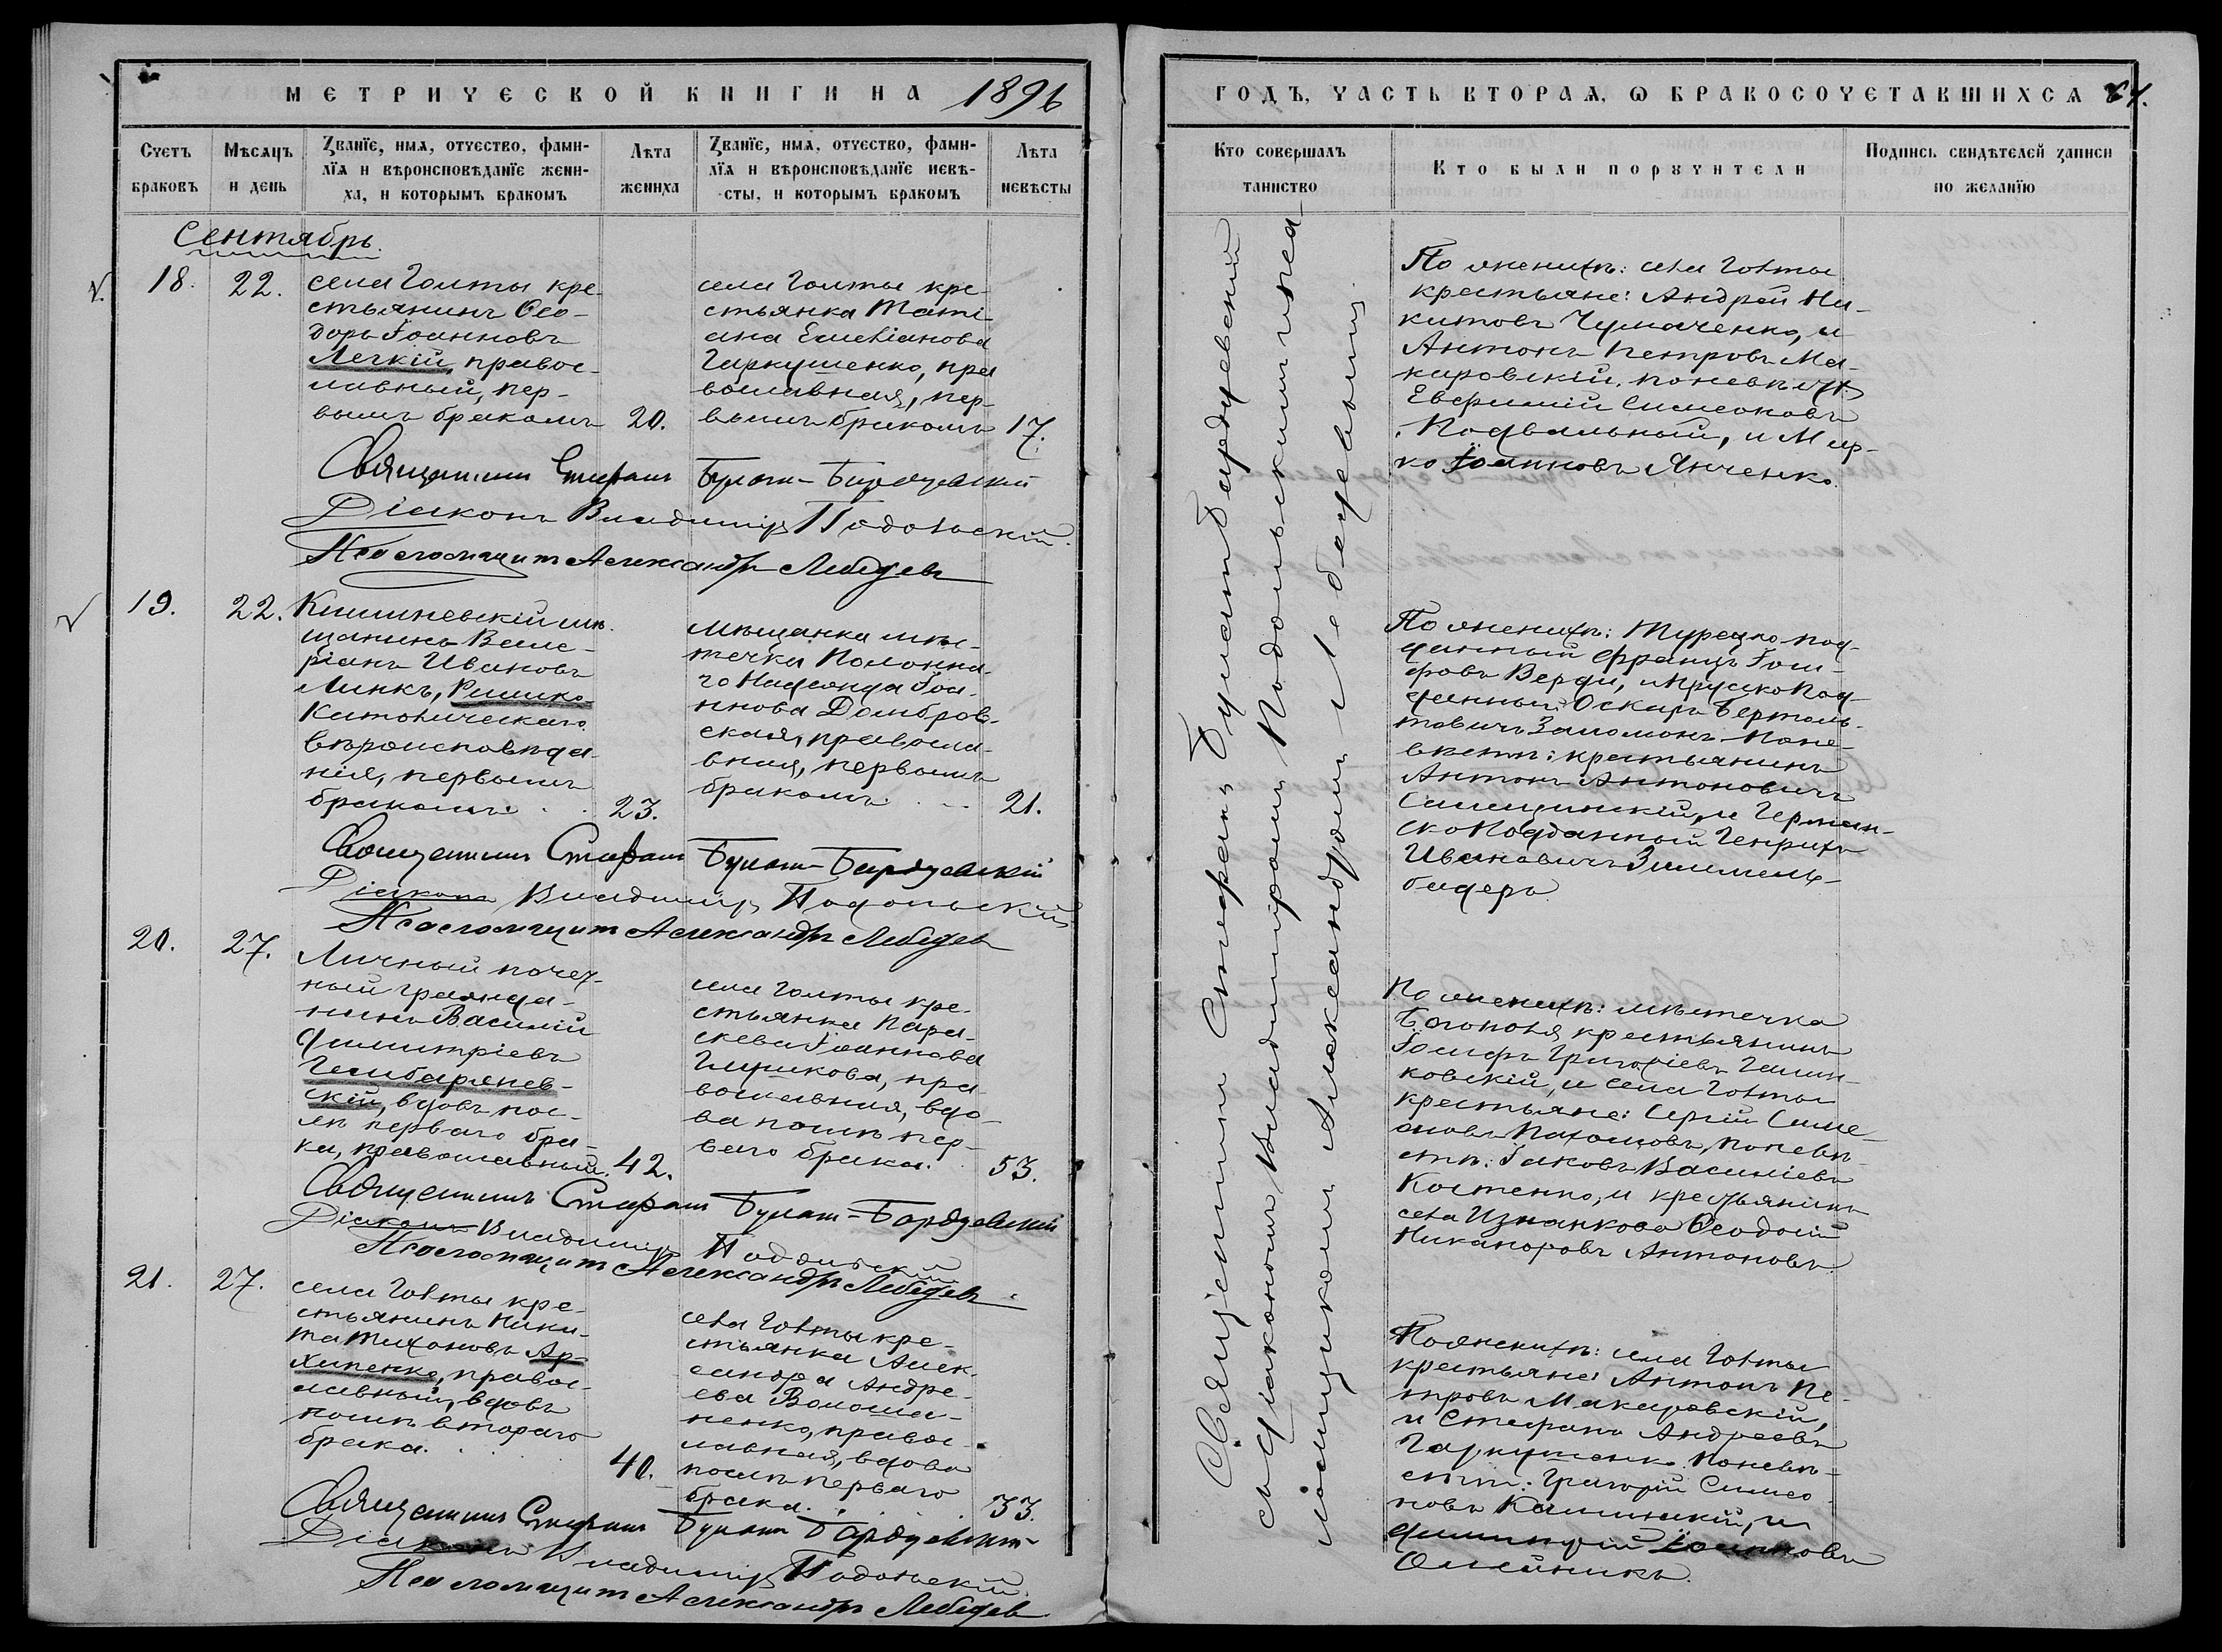 МЕТРИЧЕСКОЙ КНИГИ НА 1896
Счетъ браковъ
Мѣсяцъ и день
Званїе, имя, отчество, фами-
лїя и вѣроисповѣданїе жени-
ха, и которымъ бракомъ
Лѣта
жениха
Званїе, имя, отчество, фами-
лїя и вѣроисповѣданїе невѣ-
сты, и которымъ бракомъ
Лѣта
невѣсты
Сентябрь.
18.
22.
села Голты кре-
стьянинъ Ѳео-
доръ Іоанновъ
Легкій, правос-
лавный, пер-
вымъ бракомъ
20.
села Голты кре-
стьянка Таті-
ана Емеліанова
Гаркушенко, пра
вославная, пер-
вымъ бракомъ
17.
Священникъ Стефанъ Булат-Бардзевскій
Діаконъ Владиміръ Подольскій.
Псаломщикъ Александръ Лебедевъ
19.
22.
Кишиневскій мѣ-
щанинъ Вале-
ріанъ Ивановъ
Линкъ, Римско
Католическаго
вѣроисповѣда-
нія, первымъ
бракомъ
23.
Мѣщанка мѣс-
течка Полонна-
го Надежда Іоа-
ннова Домбров-
ская, правосла-
вная, первымъ
бракомъ
21.
Священникъ Стефанъ Булат-Бардзевскій
Діаконъ Владиміръ Подольскій
Псаломщикъ Александръ Лебедевъ
20.
27.
Личный почет-
ный гражда-
нинъ Василій
Димитріевъ
скій, вдовъ пос-
лѣ перваго бра-
ка, православный.
42.
села Голты кре-
стьянка Пара-
скева Іоаннова
пра-
вославная, вдо-
ва послѣ пер-
ваго брака.
53.
Священникъ Стефанъ Булат-Бардзевскій
Діаконъ Владиміръ Подольскій
Псаломщикъ Александръ Лебедевъ
21.
27.
села Голты кре-
стьянинъ Ники-
та Тихоновъ Ар-
хипенко, правос-
лавный, вдовъ
послѣ втораго
брака.
40.
села Голты кре-
стьянка Алек-
сандра Андре-
ева Волоша-
ненко, правос-
лавная, вдова
послѣ перваго
брака.
33.
Священникъ Стефанъ Булат Бардзевскій
Діаконъ Владиміръ Подольскій.
Псаломщикъ Александръ Лебедевъ
ГОДЪ, ЧАСТЬ ВТОРАЯ, Ѡ БРАКОСОЧЕТАВШИХСЯ
Кто совершалъ
таинство
Кто были порꙋчители
Подпись свидѣтелей записи
по желанїю
Священникъ Стефанъ Булатъ Бардзевскій
съ діакономъ Владиміромъ Подольскимъ и пса
ломщикомъ Александромъ Лебедевымъ.
По женихѣ: села Голты
крестьяне: Андрей Ни-
китовъ Чумаченко, и
Антонъ Петровъ Ма-
каровскій. по невѣстѣ
Евфимій Симеоновъ
Подвальный, и Мар-
ко Іоанновъ Янченко.
По женихѣ: Турецко под-
данный Францъ Іоси-
фовъ Верди, и Прусско Под-
данный Оскаръ Бертоль-
товичъ Заломонъ. По не-
вѣстѣ: крестьянинъ
Антонъ Антоновичъ
и Герман-
ско Подданный Генрихъ
Ивановичъ Зиммель-
бадеръ.
По женихѣ: мѣстечка
Богополя крестьянинъ
Іосифъ Григоріевъ
ковскій, и села Голты
крестьяне: Сергій Симе-
оновъ Пахомовъ, по невѣ-
стѣ: Іаковъ Василіевъ
Костенко, и крестьянинъ
села Ѳеодосій
Никаноровъ Антоновъ.
По женихѣ: села Голты
крестьяне: Антонъ Пе-
тровъ Макаровскій,
и Стефанъ Андреевъ
Гаркушенко. По невѣ-
стѣ: Григорій Симео-
новъ Калинскій, и
Димитрій Іоанновъ
Олейникъ.